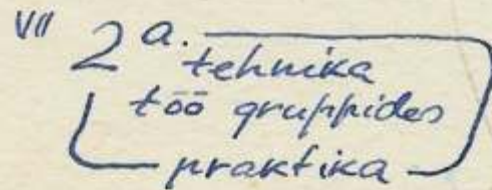 VII 2a.
tehnika
töö gruppides
praktika